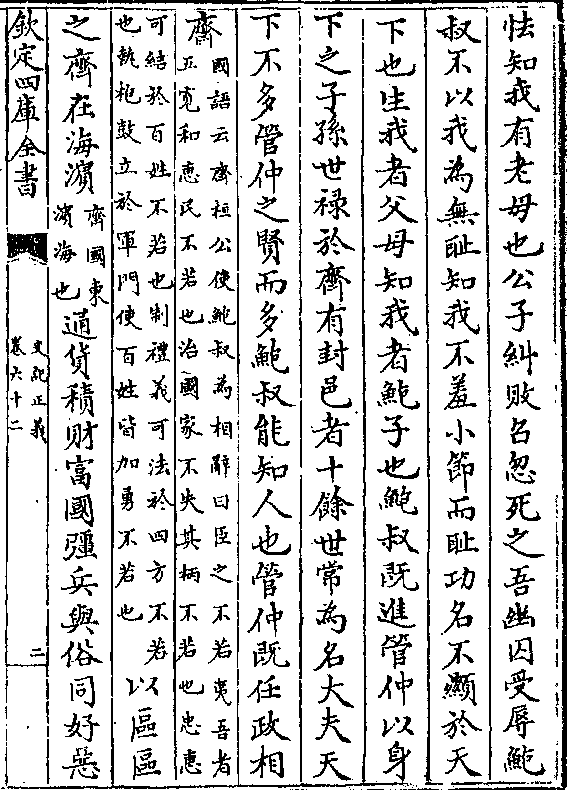 怯知我有老母也公子糾敗召忽死之吾幽囚受辱鮑
叔不以我為無耻知我不羞小節而耻功名不顯於天
下也生我者父母知我者鮑子也鮑叔既進管仲以身
下之子孫世禄於齊有封邑者十餘世常為名大夫天
下不多管仲之賢而多鮑叔能知人也管仲既任政相
齊
國語云齊桓公使鮑叔為相辭曰臣之不若夷吾者
五寛和惠民不若也治國家不失其柄不若也忠惠
可結於百姓不若也制禮義可法於四方不若
也執枹鼓立於軍門使百姓皆加勇不若也
以區區
之齊在海濱
齊國東
濱海也
通貨積財富國彊兵與俗同好惡
欽定四庫全書
史記正義
卷六十二
二